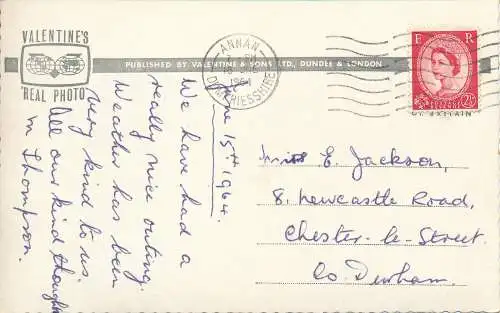 VALENTINE'S
"REAL PHOTO"
PUBLISHED BY VALENTINE & SONS LTD., DUNDEE & LONDON
ANNAN
1964
DUMFRIESSHIRE
2½
June 15th 1964.
We have had a
really nice outing.
Weather has been
very kind to us
All our kind thoughts
M Thompson.
E. Jackson,
8. Newcastle Road,
Chester-le-Street
Co Durham.